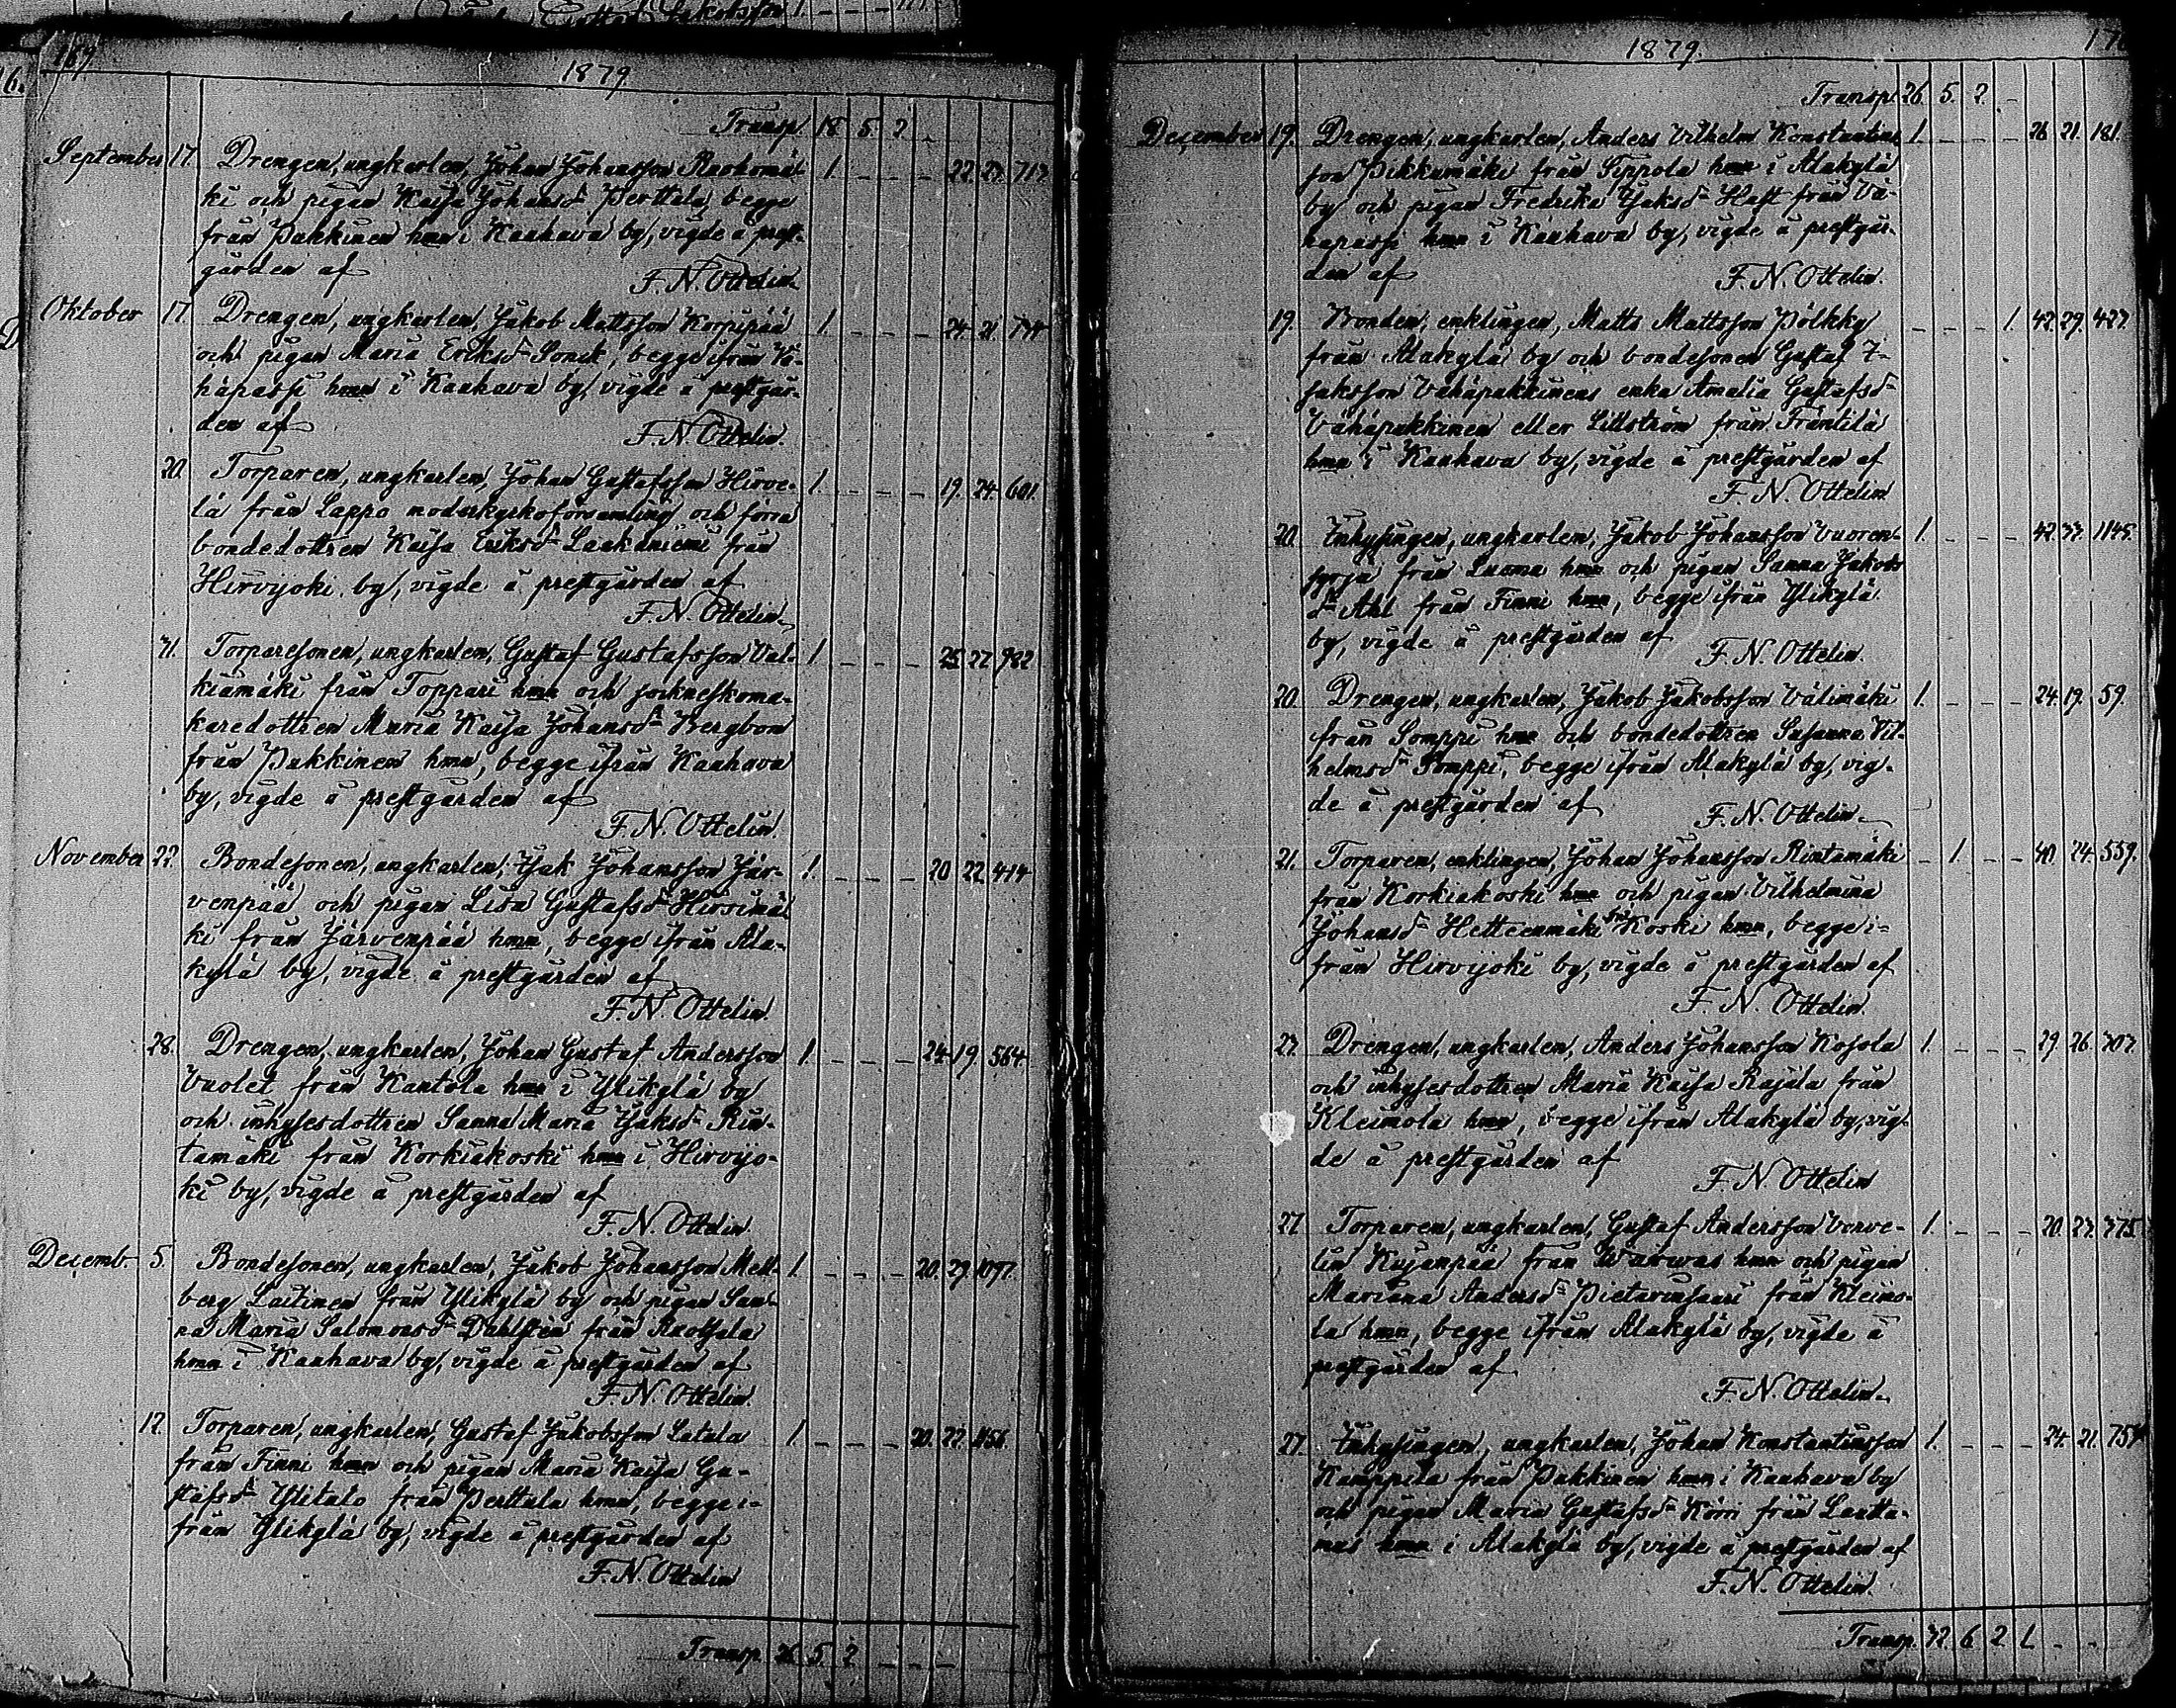 169
1879
Transp. 18. 5. 2. _
September 17. Drengen, ungkarlen, Johan Johansson Ruohomä- 1. _ _ _ _ 22. 23. 713.
ki och pigan Kaisa Johansd. Perttala, begge
från Pukkinen hmn i Kauhava by, vigde å prest-
gården af
F. N. Ottelin.
Oktober 17. Drengen, ungkarlen, Jakob Mattsson Korpipää 1. _ _ _ _ 24. 21.
och pigan Maria Eriksd. Sonck, begge ifrån Vä-
häpassi hmn i Kauhava by, vigde å prestgår-
den af
F. N. Ottelin.
20. Torparen, ungkarlen, Johan Gustafsson Hirve- 1. _ _ _ _ 19. 24. 601.
lä från Lappo moderkyrkoförsamling och förra
bondedottren Kaisa Eriksd. Laakaniemi från
Hirvijoki by, vigde å prestgården af
F. N. Ottelin.
31. Torparesonen, ungkarlen, Gustaf Gustafsson Val- 1. _ _ _ _ 25. 22. 982
kiamäki från Toppari hmn och sockneskoma-
karedottren Maria Kaisa Johansd. Bergbom
från Pukkinen hmn, begge ifrån Kauhava
by, vigde å prestgården af
F. N. Ottelin.
November 22. Bondesonen, ungkarlen, Isak Johansson Jär- 1. _ _ _ _ 20. 22. 414
venpää och pigan Lisa Gustafsd. Hirsimä-
ki från Järvenpää hmn, begge ifrån Ala-
kylä by, vigde å prestgården af
F. N. Ottelin.
28. Drengen, ungkarlen, Johan Gustaf Andersson 1. _ _ _ _ 24. 19. 564.
Vuolet från Kantola hmn i Ylikylä by
och inhysesdottren Sanna Maria Isaksd. Rin-
tamäki från Korkiakoski hmn i Hirvijo-
ki by, vigde å prestgården af
F. N. Ottelin
Decemb. 5. Bondesonen, ungkarlen, Jakob Johansson Mell- 1. _ _ _ _ 20. 29. 1097.
berg Laitinen från Ylikylä by och pigan San-
na Maria Salomonsd. Dahlsten från Ruotsala
hmn i Kauhava by, vigde å prestgården af
F. N. Ottelin.
12. Torparen, ungkarlen, Gustaf Jakobsson Latala 1. _ _ _ _ 20. 22. 1156.
från Finni hmn och pigan Maria Kaisa Gu-
stafsd. Ylitalo från Perttula hmn, begge i-
från Ylikylä by, vigde å prestgården af
F. N. Ottelin
Transp. 26. 5. 2 _ _ _
1879.
Transp. 26. 5. 2. _
December 19. Drengen, ungkarlen, Anders Vilhelm Konstantins- 1. _ _ _ _ 26. 21. 181.
son Pikkumäki från Tippola hmn i Alakylä
by och pigan Fredrika Isaksd. Hast från Vä-
häpassi hmn i Kauhava by, vigde å prestgår-
den af
F. N. Ottelin.
19. Bonden, enklingen, Matts Mattsson Pölkky _ _ _ 1. 42. 29. 423.
från Alakylä by och bondesonen Gustaf I-
saksson Vähäpukkinens enka Amalia Gustafsd.
Vähäpukkinen eller Lillström från Fräntilä
hmn i Kauhava by, vigde å prestgården af
F. N. Ottelin
20. Inhysingen, ungkarlen, Jakob Johansson Vuoren- 1. _ _ _ _ 42. 33. 1145.
syrja från Luoma hmn och pigan Sanna Jakobs-
d. Ahl från Finni hmn, begge ifrån Ylikylä
by, vigde å prestgården af
F. N. Ottelin.
20. Drengen, ungkarlen, Jakob Jakobsson Välimäki 1. _ _ _ _ 24. 19. 59.
från Somppi hmn och bondedottren Susanna Vil-
helmsd. Somppi, begge ifrån Alakylä by, vig-
de å prestgården af
F. N. Ottelin.
21. Torparen, enklingen, Johan Johansson Rintamäki _ 1. _ _ _ 40. 24. 559.
från Korkiakoski hmn och pigan Vilhelmina
Johansd. Hetteenmäki frn Koski hmn, begge i-
från Hirvijoki by, vigde å prestgården af
F. N. Ottelin.
23. Drengen, ungkarlen, Anders Johansson Kosola 1. _ _ _ _ 29. 26. 303.
och inhysesdottren Maria Kaisa Rajala från
Kleimola hmn, begge ifrån Alakylä by, vig-
de å prestgården af
F. N. Ottelin
27. Torparen, ungkarlen, Gustaf Andersson Verve- 1. _ _ _ _ 20. 23. 375.
lin Kujanpää från hmn och pigan
Mariana Andersd. Pietarinsaari från Kleimo-
la hmn, begge ifrån Alakylä by, vigde å
prestgården af
F. N. Ottelin.
27. Inhysingen, ungkarlen, Johan Konstantinsson 1. _ _ _ _ 24. 21.
Kamppila från Pukkinen hmn i Kauhava by
och pigan Maria Gustafsd. Körri från Lautta-
mus hmn i Alakylä by, vigde å prestgården af
F. N. Ottelin.
Transp. 32. 6. 2 1. _ _